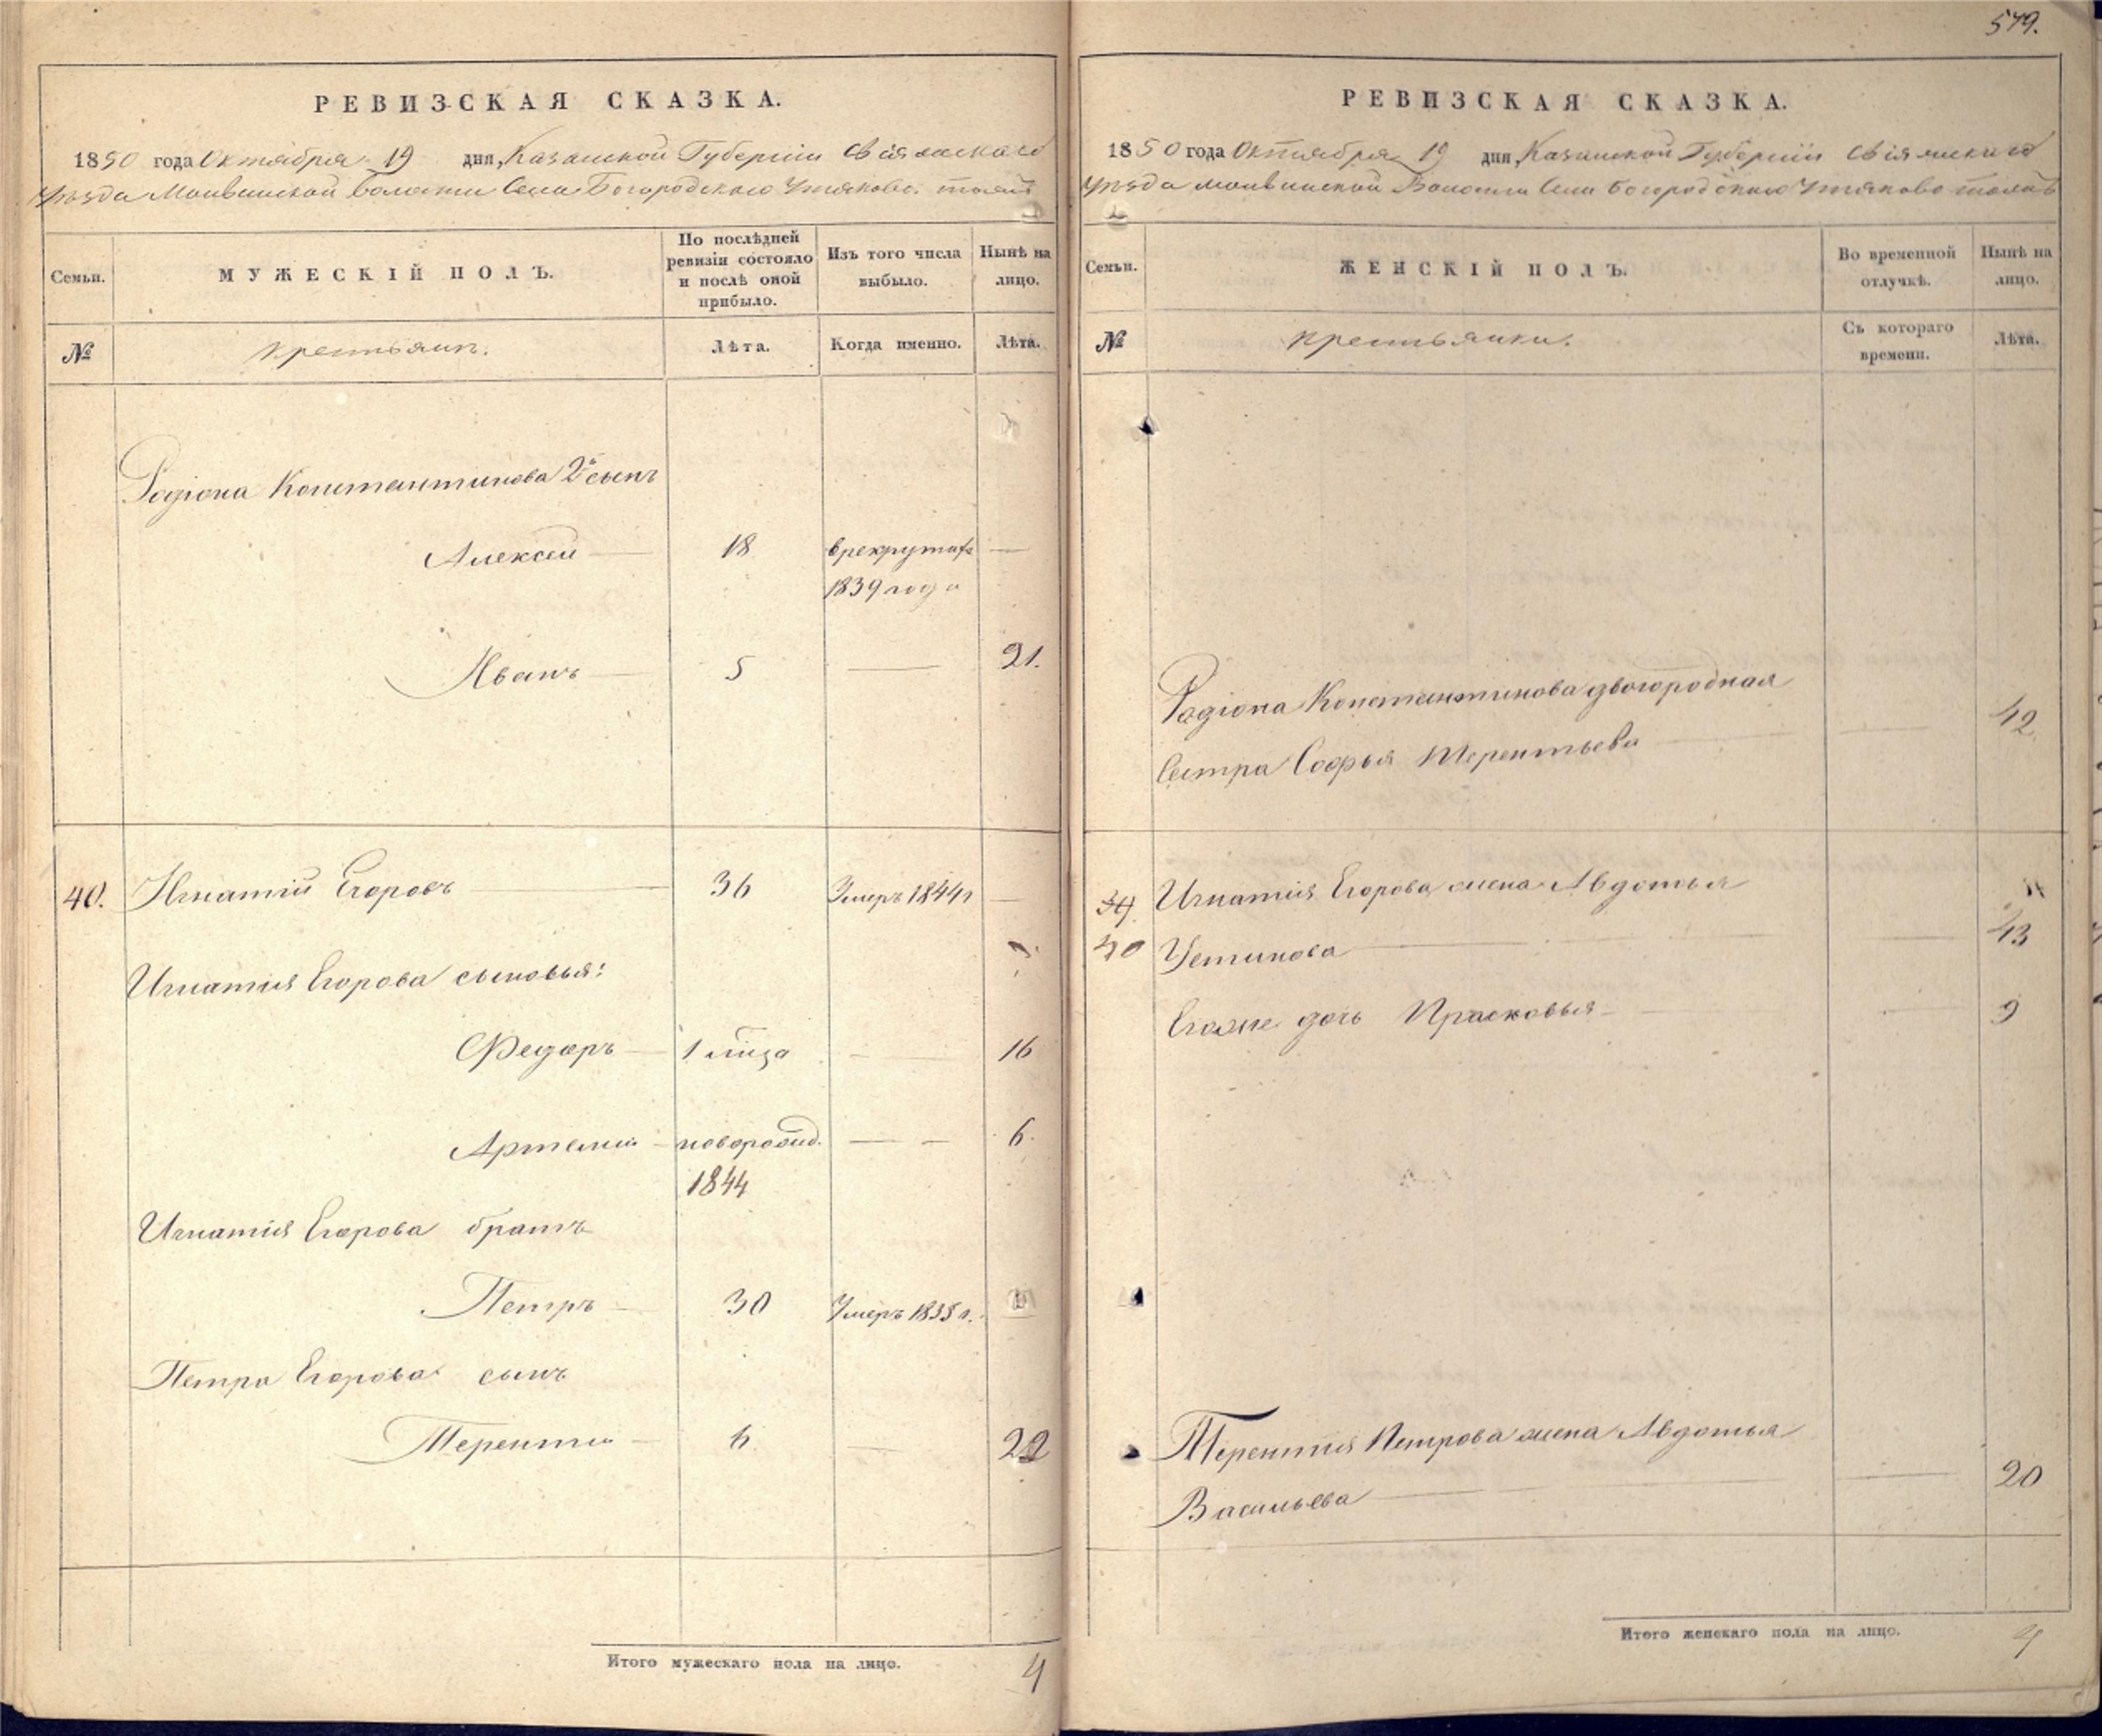 579.
РЕВИЗСКАЯ СКАЗКА.
1850 года Октября 19 дня, Казанской Губернiи Свiяжскаго
Уѣзда Волости Села Богородскаго Утяково тожъ
Семьи.
МУЖЕСКІЙ ПОЛЪ.
По послѣдней ревизіи состояло и послѣ оной прибыло.
Изъ того числа выбыло.
Нынѣ на лицо.
№
крестьянъ.
Лѣта.
Когда именно.
Лѣта.
Родiона Константинова 2й сынъ
Алексей 18 в рекрутахъ
1839 года
Иванъ 5 21.
40. Игнатiй Егоровъ 36 Умеръ 1844 г
Игнатiя Егорова сыновья:
Федоръ 1 мѣсяц 16
Артемий новорожд. 6.
1844
Игнатiя Егорова братъ
Петръ 30 Умеръ 1835 г.
Петра Егорова сынъ
Терентий 6 22
Итого мужескаго пола на лицо. 4
РЕВИЗСКАЯ СКАЗКА.
1850 года Октября 19 дня, Казанской Губернiи Свiяжскаго
Уѣзда Волости Села Богородскаго Утяково тожъ
Семьи.
ЖЕНСКІЙ ПОЛЪ.
Во временной отлучкѣ.
Нынѣ на лицо.
№
крестьянки.
Съ котораго времени.
Лѣта.
Родiона Константинова двоюродная
Сестра Софья Терентьева 42
Игнатiя Егорова жена Авдотья
40 Устинова 43
Егоже дочь Прасковья 9
Терентiя Петрова жена Авдотья
Васильева 20
Итого женскаго пола на лицо. 4